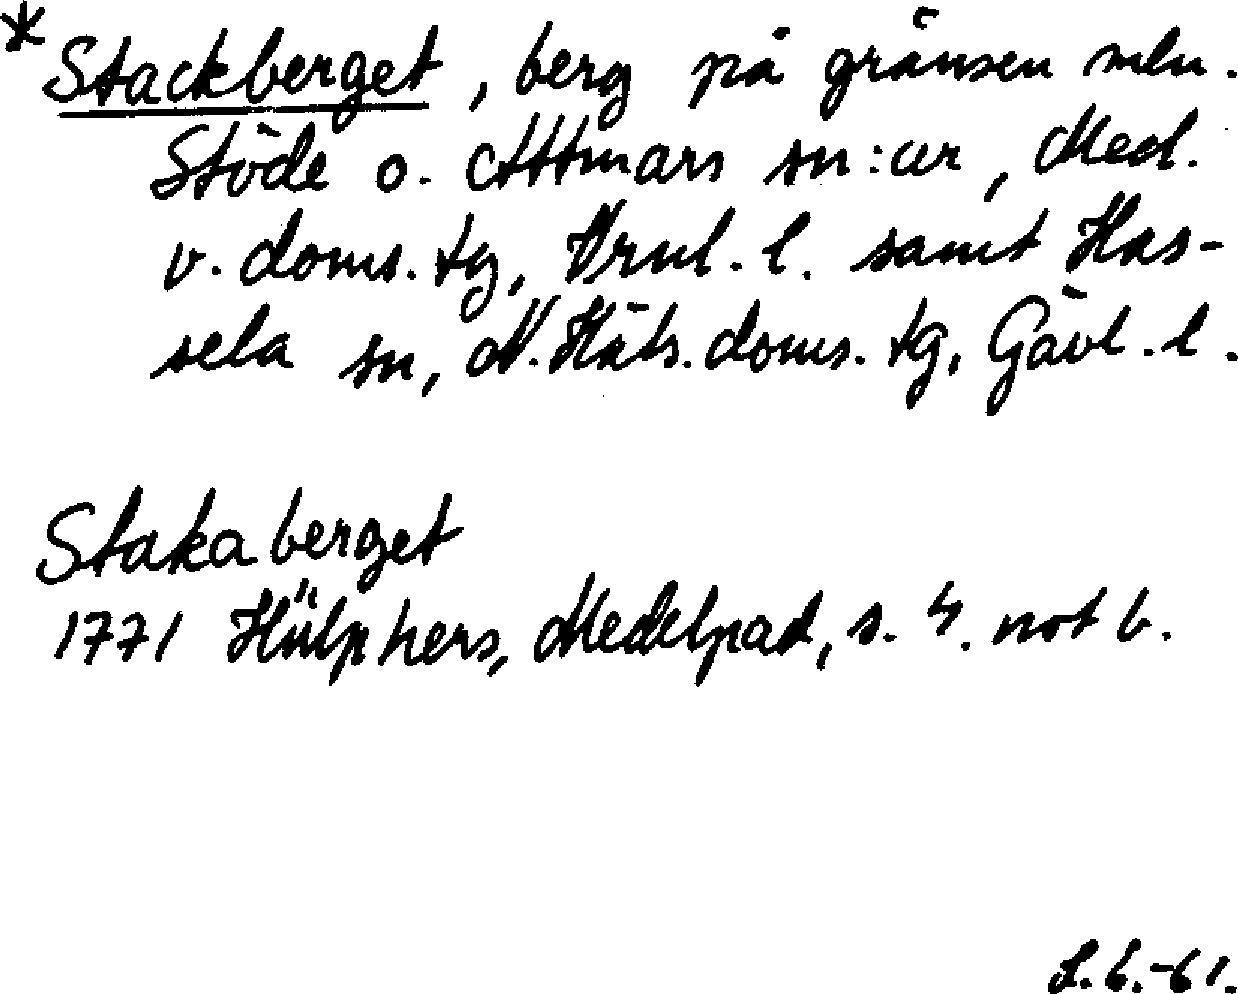 *Stackberget, berg på gränsen mln.
Stöde o. Attmars sn:ar, Med.
v. doms. tg, Vrnl. l. samt Has-
sela sn, N. Häls. doms. tg, Gävl. l.
Stakaberget
1771 Hülphers, Medelpad, s. 4. not b.
L.E.-61.